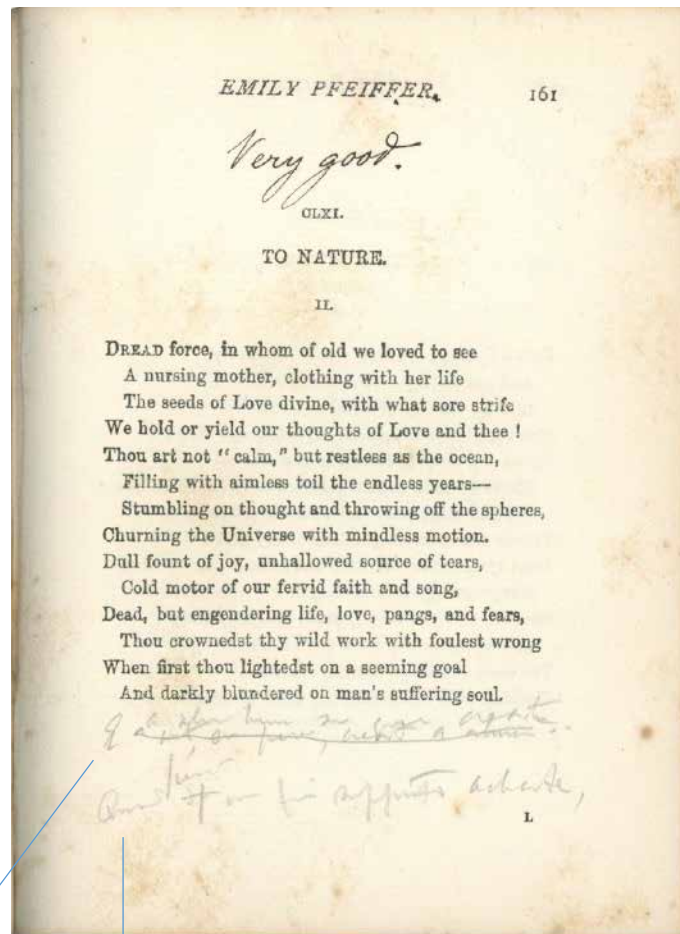 EMILY PFEIFFER. 161
Very good.
CLXI.
TO NATURE.
II.
DREAD force, in whom of old we loved to see
A nursing mother, clothing with her life
The seeds of Love divine, with what sore strife
We hold or yield our thoughts of Love and thee !
Thou art not "calm," but restless as the ocean,
Filling with aimless toil the endless years—
Stumbling on thought and throwing off the spheres,
Churning the Universe with mindless motion.
Dull fount of joy, unhallowed source of tears,
Cold motor of our fervid faith and song,
Dead, but engendering life, love, pangs, and fears,
Thou crownedst thy wild work with foulest wrong
When first thou lightedst on a seeming goal
And darkly blundered on man's suffering soul.
L